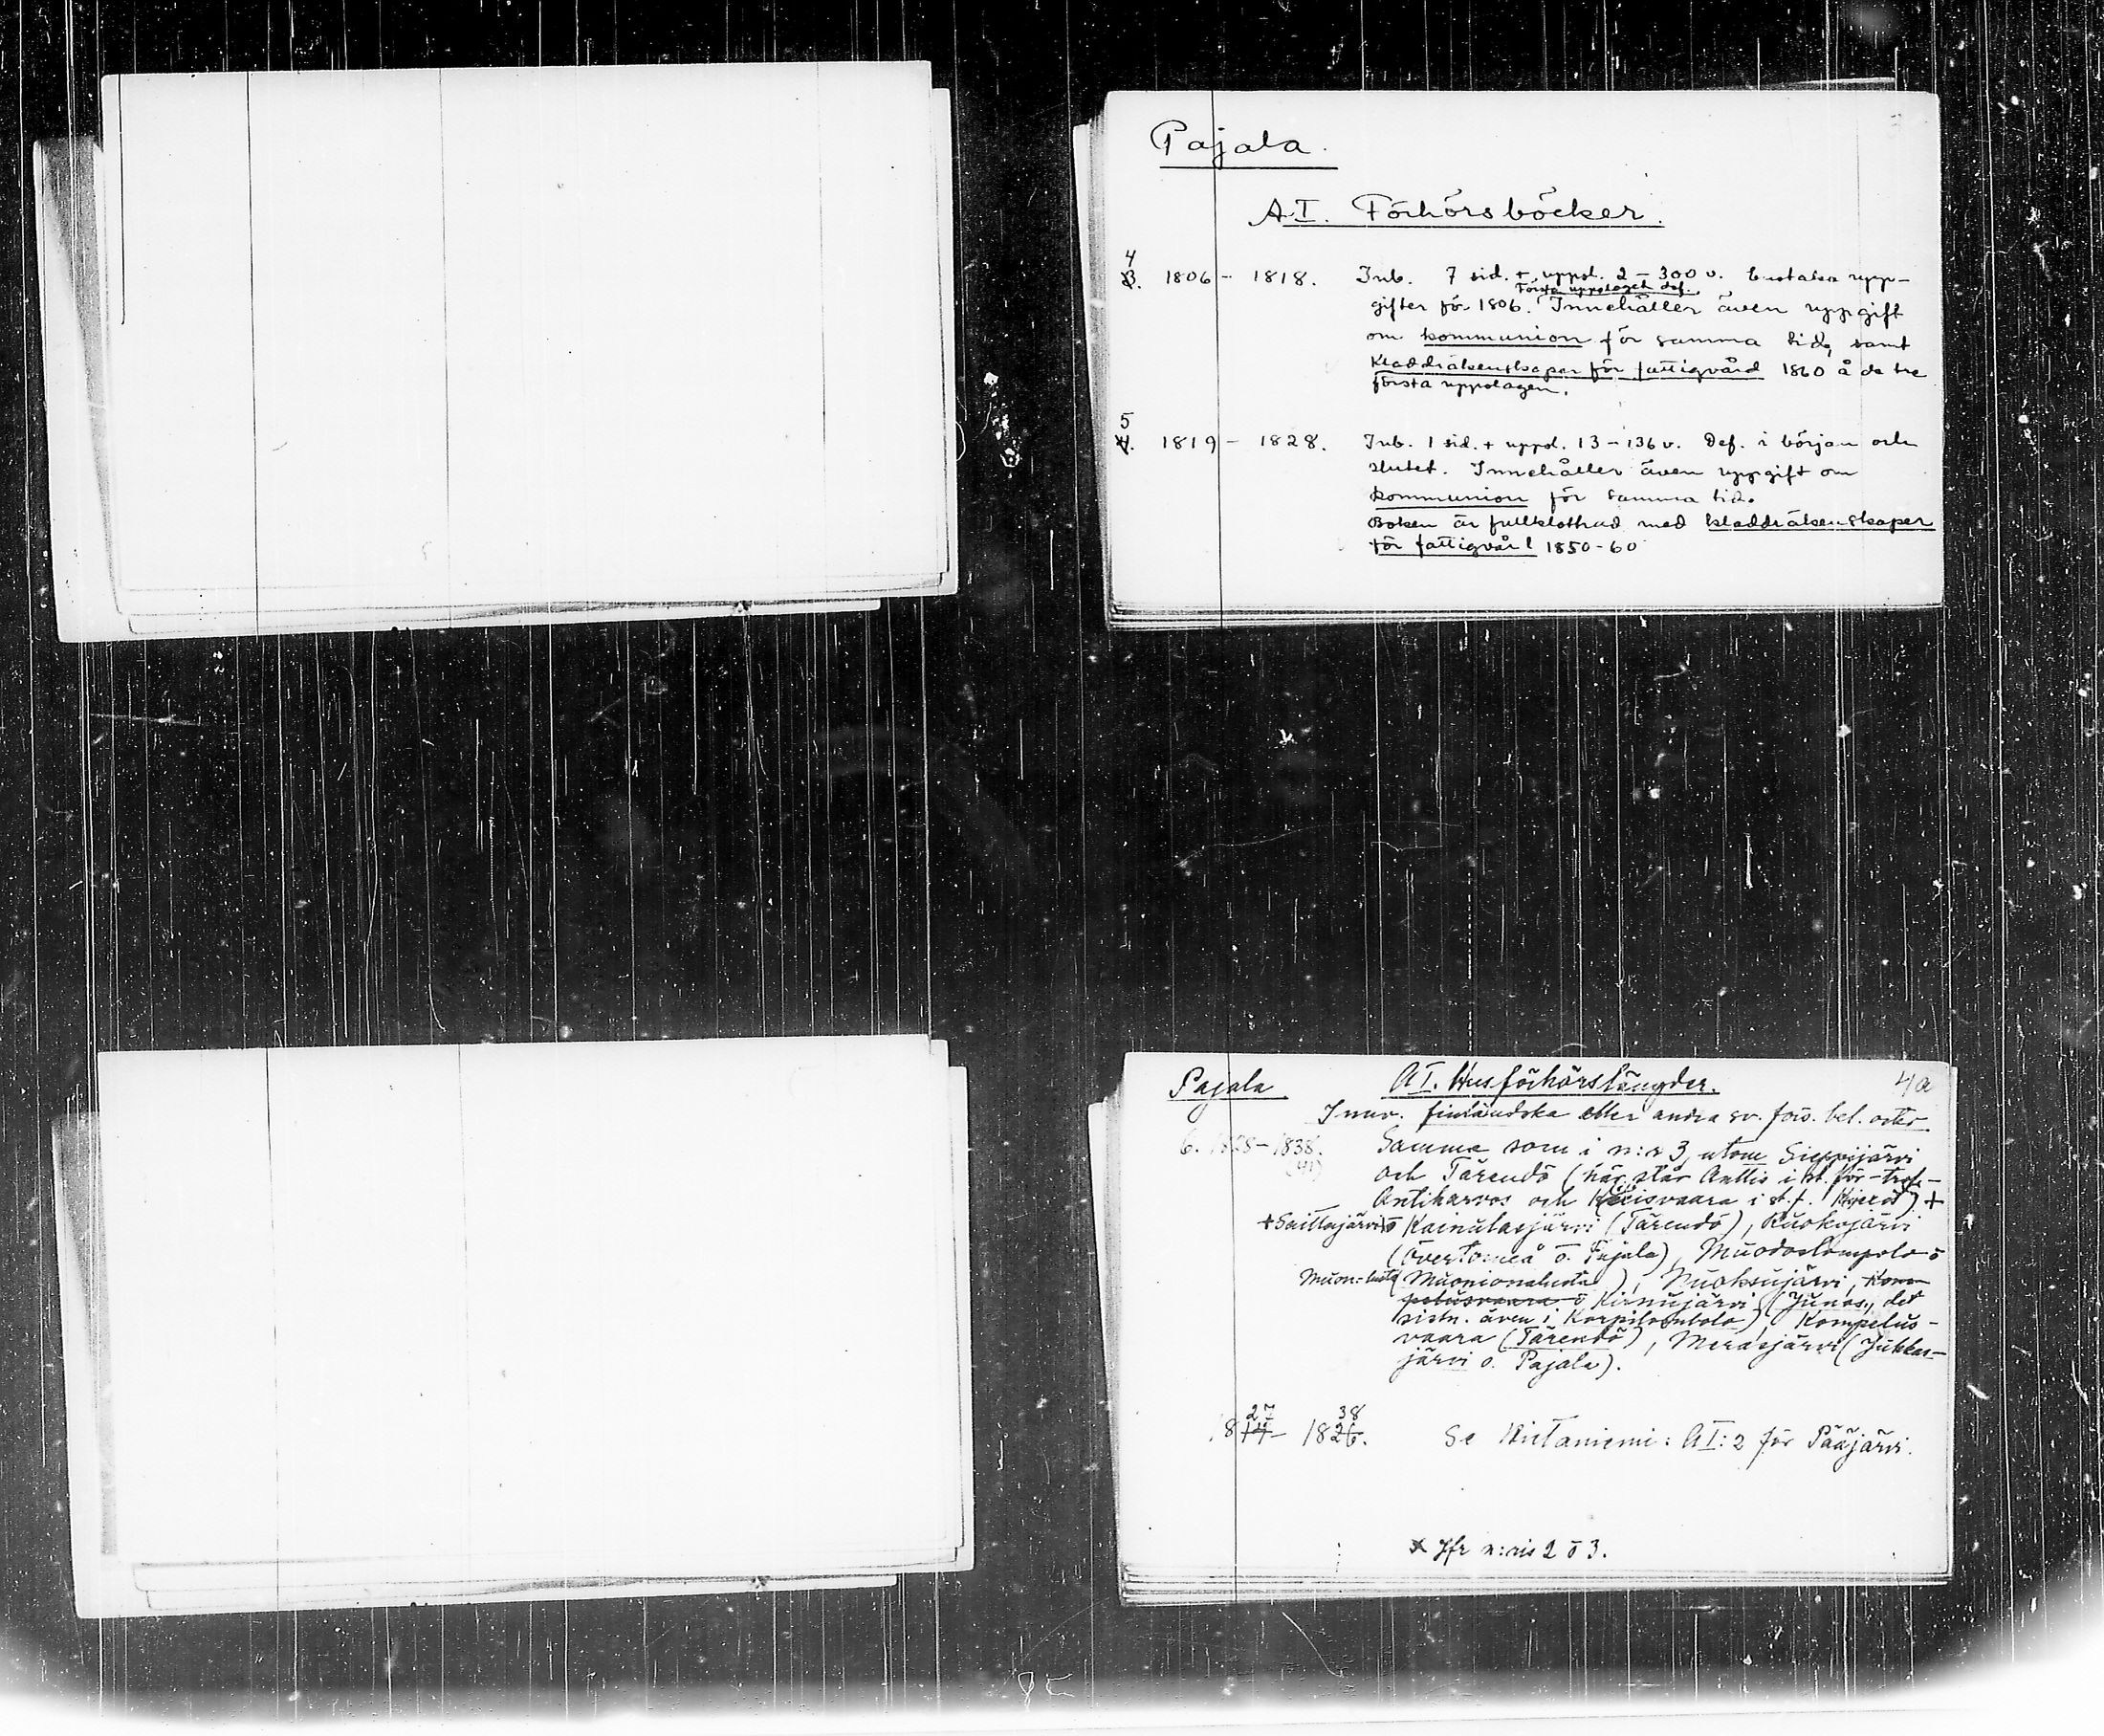 Pajala.
A I. Förhörsböcker.
4
3. 1806 - 1818. Inb. 7 sid. + uppsl. 2 - 300 v. Enstaka upp-
Första uppslaget def.
gifter för 1806. Innehåller även uppgift
om kommunion för samma tid, samt
Kladdräkenskaper för fattigvård 1860 å de tre
första uppslagen.
5
4. 1819 - 1828. Inb. 1 sid. + uppsl. 13 - 136 v. Def. i början och
slutet. Innehåller även uppgift om
kommunion för samma tid.
Boken är fullklottrad med kladdräkenskaper
för fattigvård 1850-60
Pajala A I. Husförhörslängder. 4a
Innv. finländska eller andra sv. förs. bel. orter
6. 1828-1838. Samma som i n:r 3, utom Sieppijärvi
(41)
och Tärendö (här står Anttis i st. för
Antikarvos och i st. f. ) +
+ Saittajärvi o Kainulasjärvi (Tärendö), Ruokojärvi
(Övertorneå o. Pajala), Muodoslompolo o
Muon:lusta (Muonionalusta), Kuoksujärvi, Kom-
pelusvaara o Kirnujärvi (Junos., det
sistn. även i Korpilombolo), Kompelus-
vaara (Tärendö), Merasjärvi (Jukkas-
järvi o. Pajala).
27 38
1814- 1826. Se Hietaniemi: A I: 2 för Pääjärvi.
x Jfr n:ris 2 o 3.